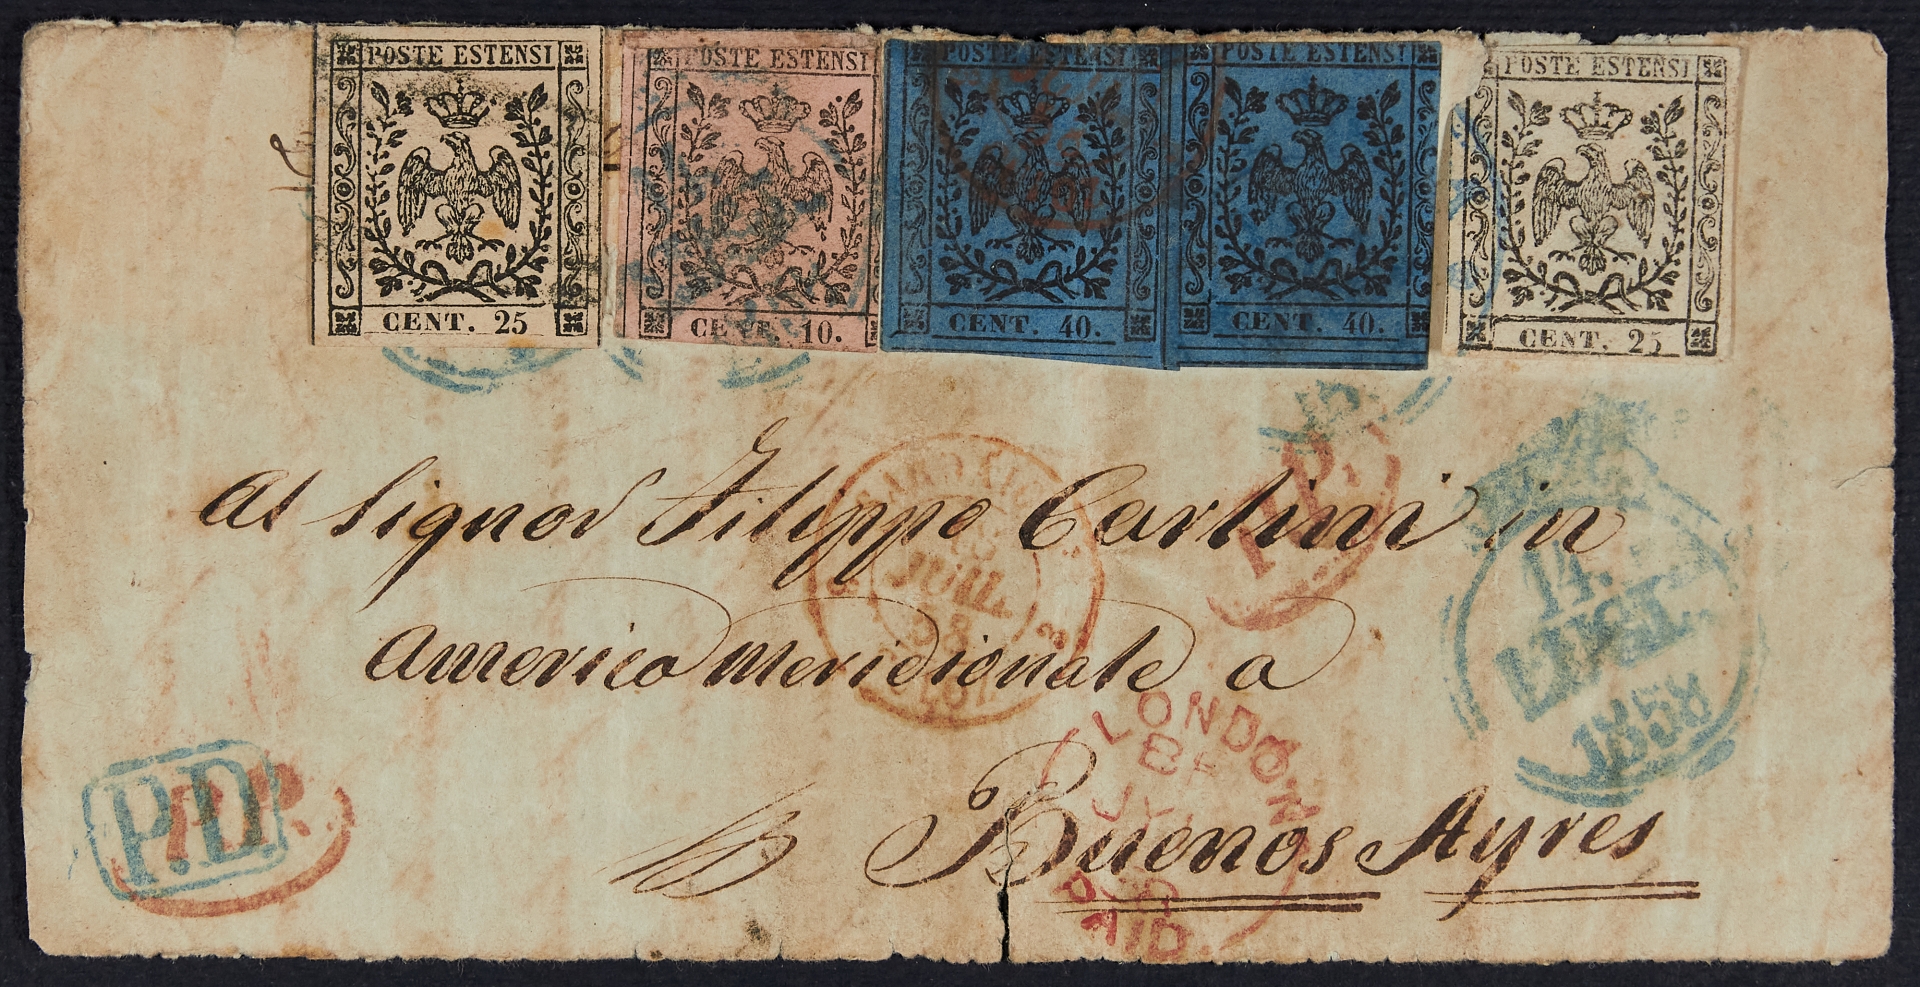 POSTE ESTENSI
CENT. 25
POSTE ESTENSI
CENT. 10.
POSTE ESTENSI
CENT. 40.
POSTE ESTENSI
CENT. 40.
POSTE ESTENSI
CENT. 25
Al Signor Filippo Carlini in
America Meridionale a
Buenos Ayres
JUIL.
58
3
P.
14.
1858
LONDON
PAID
P.D.